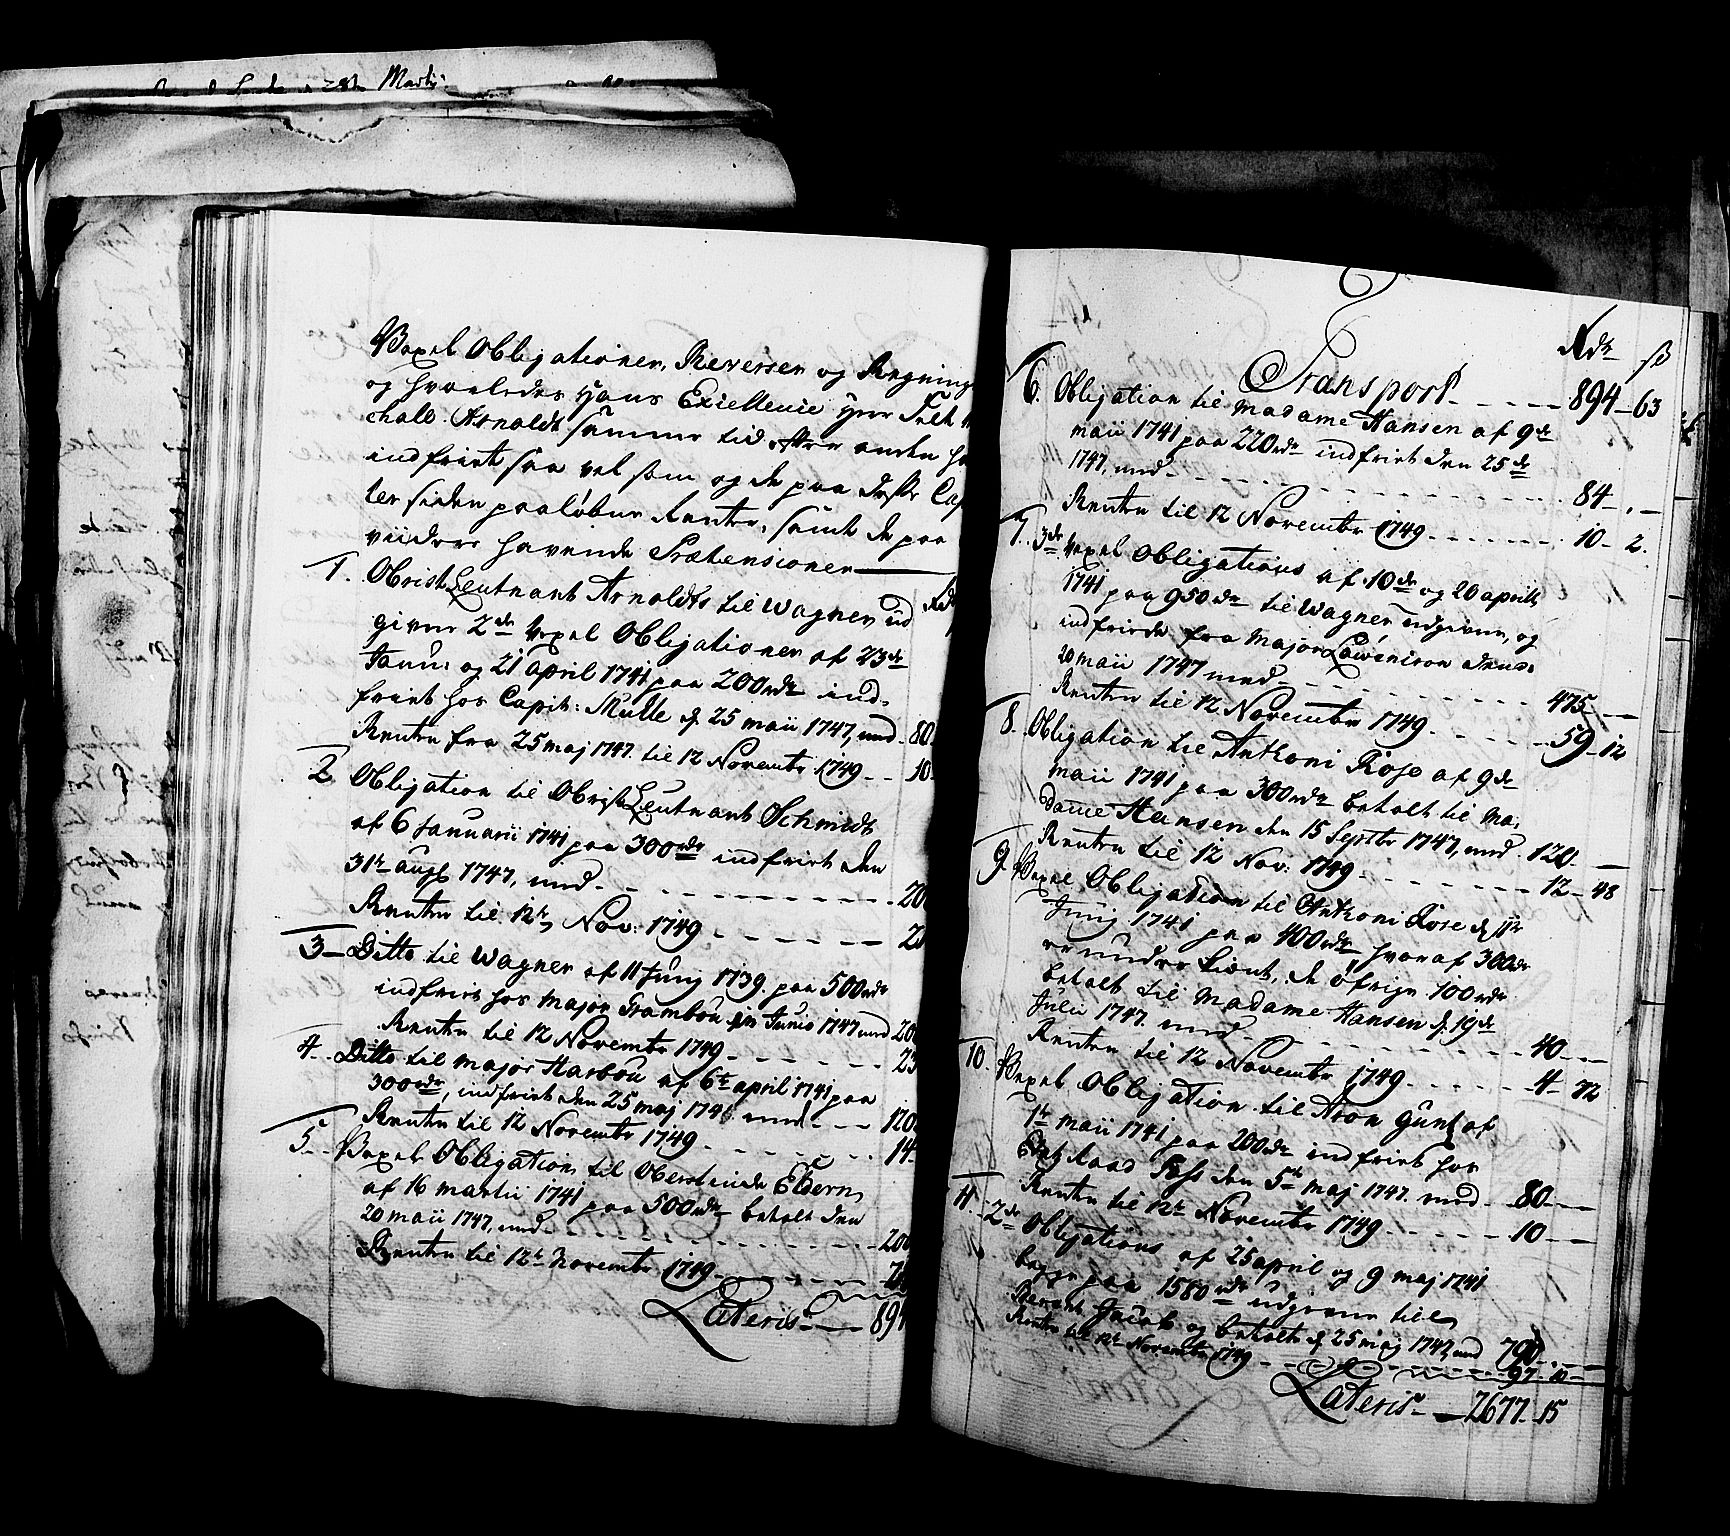 Vexel Obligationer, Reverser og Regning
og hvorledes Hans Excellence Herr Felt
chall Arnoldt samme tid efter anden ha
indfriet saa vel som og de paa disse Cap
ter siden paaløbne Renter, samt de paa
viidere havende Prætensioner
1. Obrist Leutnant Arnoldts til Wagner ud Rdr
givne 2de Vexel Obligationer af 23de
Janu: og 21 april 1741 paa 200rdr ind-
friet hos Capit: Mülle d. 25 maii 1747, med 80
Renten fra 25 maj 1747 til 12 Novembr 1749 10
2 Obligation til Obrist Leutnant Schmidt
af 6 Januarii 1741 paa 300rdr indfriet den
31te augs 1747, med 20
Renten til 12te Nov: 1749 2
3 Ditto til Wagner af 11 Junij 1739 paa 500rdr
indfriet hos major Frambou Junio 1747 med 200
Renten til 12 Novembr 1749 23
4 Ditto til major Harbou af 6te april 1741 paa
300rdr, indfriet den 25 maj 174 med 120
Renten til 12 Novembr 1749 14
5. Vexel Obligation til Oberstinde Edern
af 16 martii 1741 paa 500rdr betalt den
20 maii 1747, med 200
Renten til 12te November 1749
Lateris 894
Rdr ß
Transport 894 63
6. Obligation til Madame Hansen af 9de
maii 1741 paa 220rdr indfriet den 25de
1747, med 84
Renten til 12 Novembr 1749 10 2.
7. 3de Vexel Obligations af 10de og 20 aprilis
1741 paa 950rdr til Wagner udgivne, og
indfriede fra Major Löwenison
20 maii 1747 med 475
Renten til 12 Novembr 1749 59 12
8. Obligation til Anthoni Rose af 9de
maii 1741 paa 300rdr betalt til Ma-
dame Hansen den 15 Septbr 1747, med 120.
Renten til 12 Nov: 1749 12 48
9. Vexel Obligation til Anthoni Rose d. 11te
Junij 1741 paa 400rdr hvoraf 300rdr
er under Lont, de øfrige 100rdr
betalt til Madame Hansen d. 19de
Julii 1747 med 40
Renten til 12 Novembr 1749 4 72
10. Vexel Obligation til Aron Guntz af
1te maii 1741 paa 200rdr indfriet hos
Etats Raad Foss den 5te maj 1747 med 80
Renten til 12te Novembr 1749 10
11. 2de Obligations af 25 april og 9 maj 1741
begge paa 1580rdr udgivne til
Jacob og betalt d 25 maj 1747, med 790
Renten til 12te Novembr 1749 97 10
Lateris 2677 15